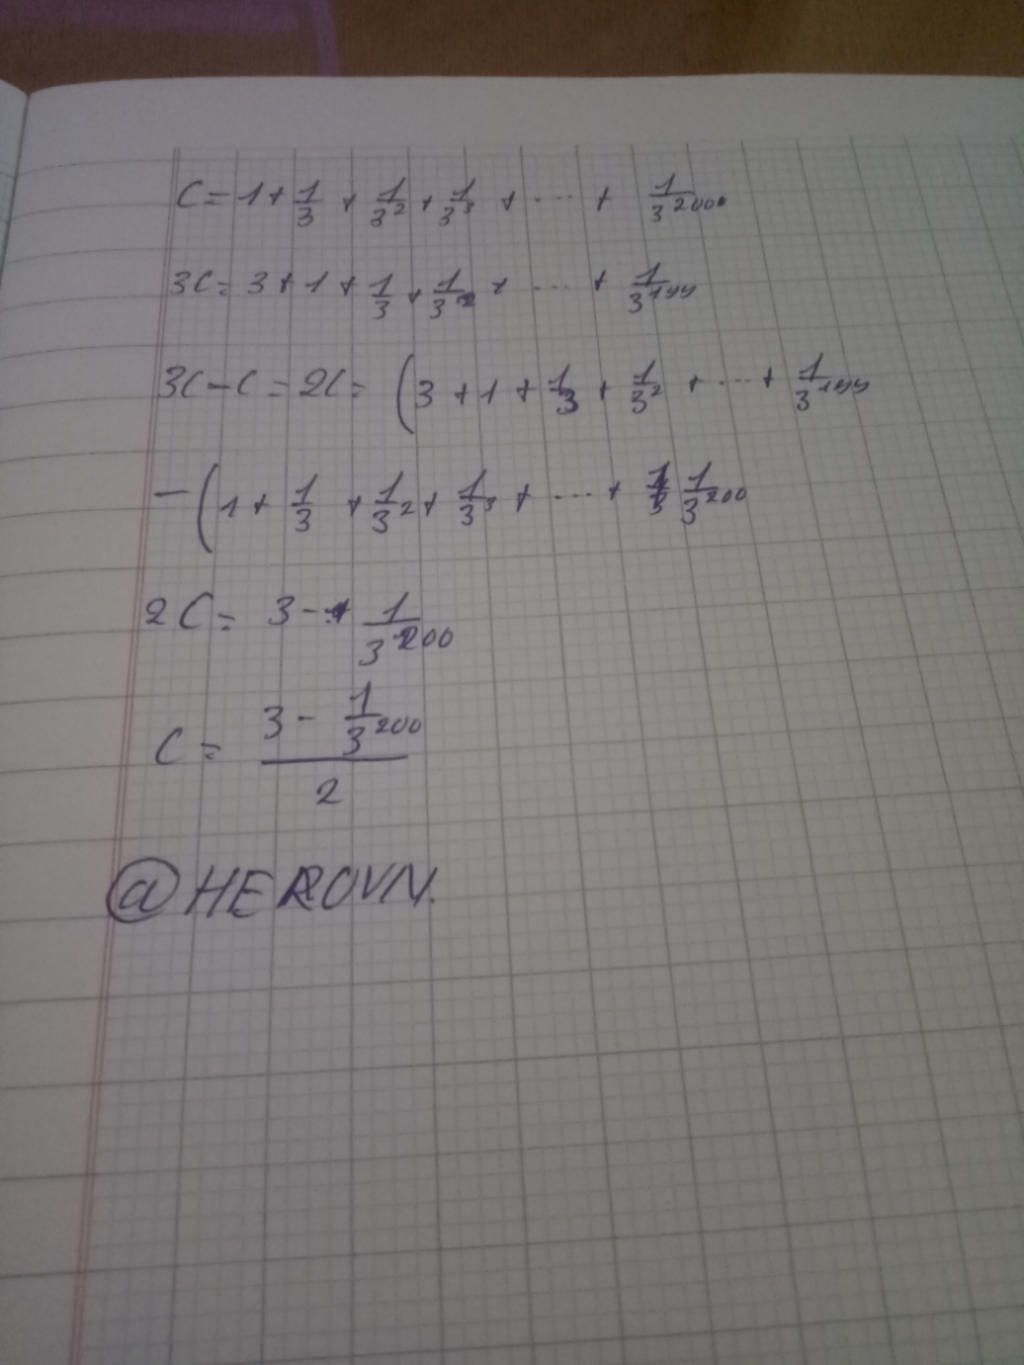 C = 1 + 1/3 + 1/3² + 1/3³ + ... + 1/3²⁰⁰⁰
3C = 3 + 1 + 1/3 + 1/3² + ... + 1/3¹⁹⁹
3C - C = 2C = (3 + 1 + 1/3 + 1/3² + ... + 1/3¹⁹⁹
- (1 + 1/3 + 1/3² + 1/3³ + ... + 1/3²⁰⁰
2C = 3 - 1/3²⁰⁰
C = (3 - 1/3²⁰⁰)/2
@HEROVN.